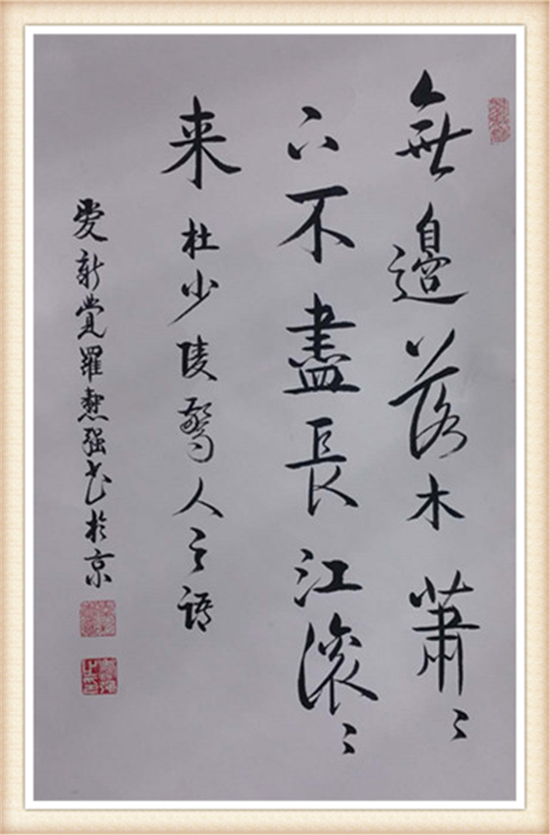 無邊落木蕭〻
下不盡長江滾〻
来 杜少陵驚人之語
愛新覺羅懋强书於京